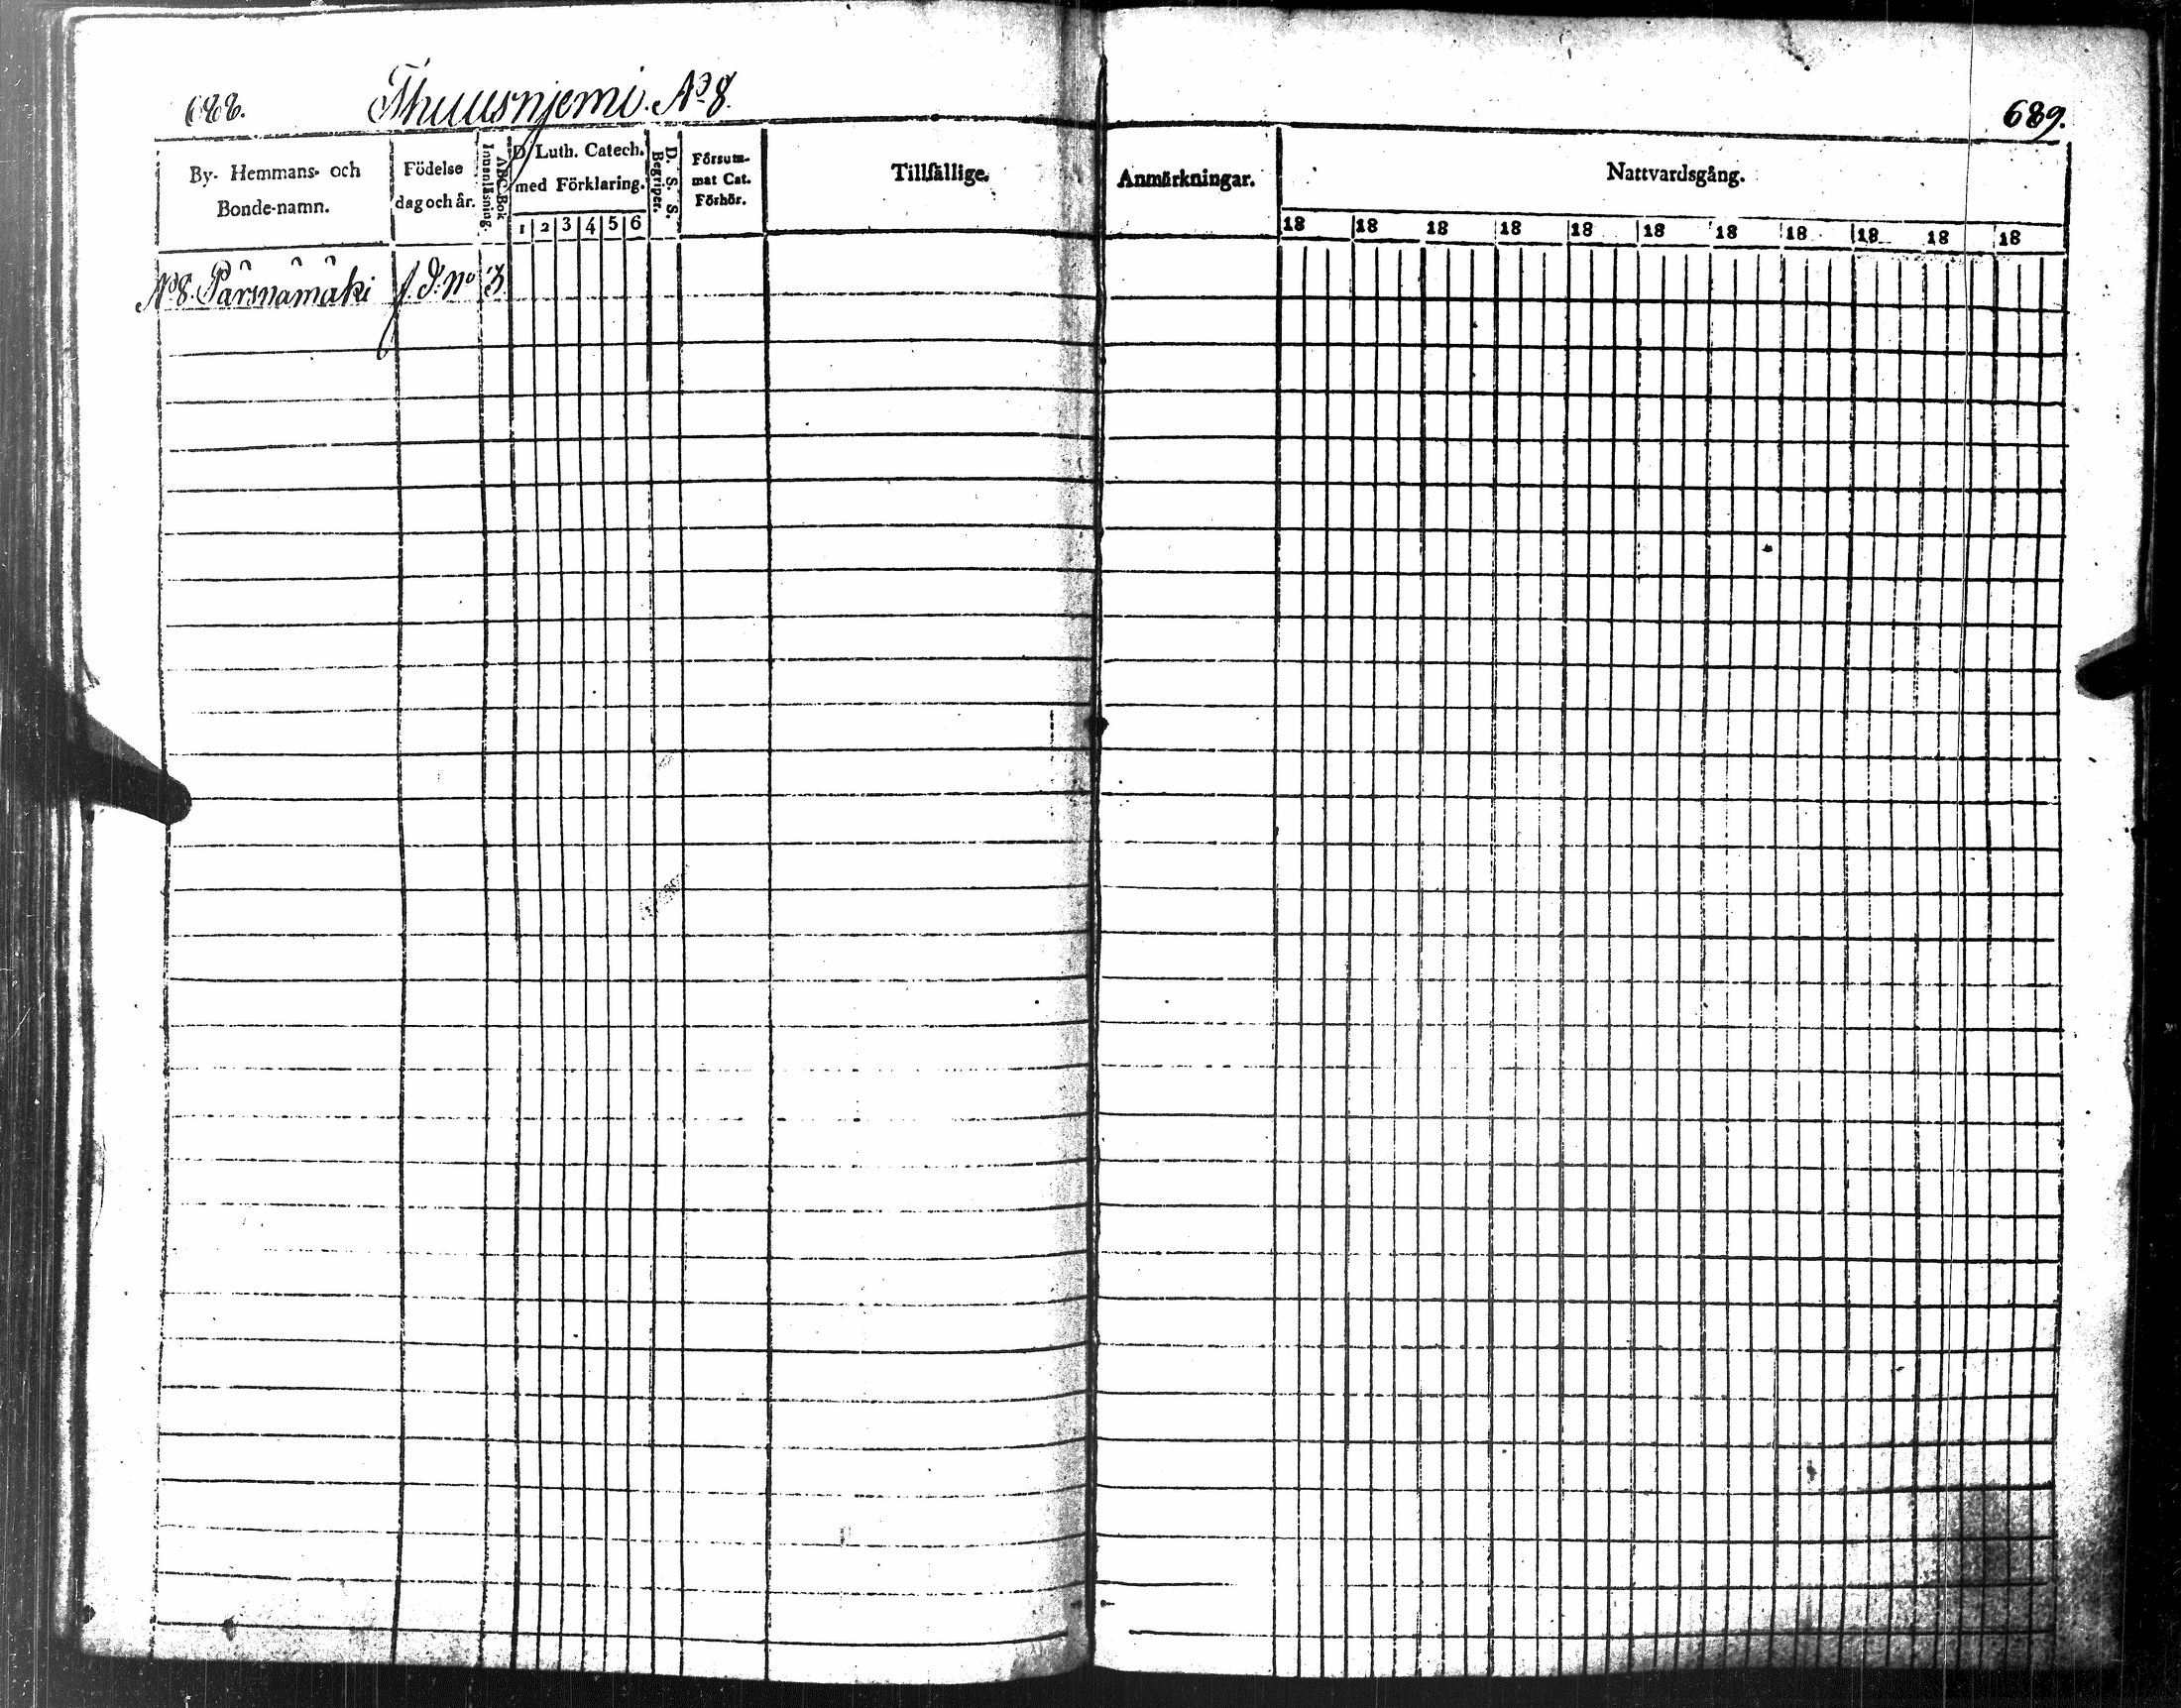 688. Thuusnjemi. No 8.
689.
By- Hemmans- och Bonde-namn.
Födelse dag och år.
ABC-Bok Innanläsning.
D. Luth. Catech. med Förklaring.
1 2 3 4 5 6
D. S. S. Begriper.
Försum-
mat Cat.
Förhör.
Tillfällige
Anmärkningar.
Nattvardsgång.
18 18 18 18 18 18 18 18 18 18 18
No 8. Pärsnämäki f. d. No 3.